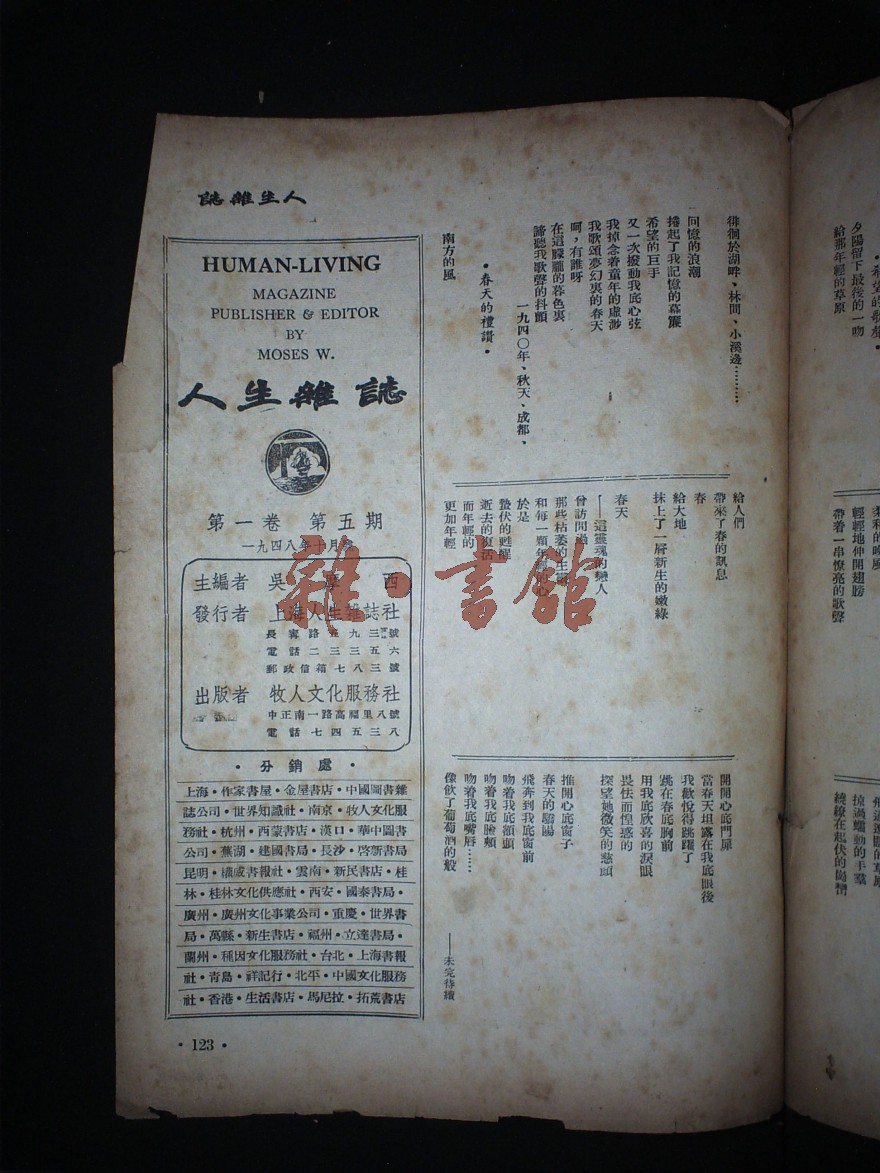 人生雜誌
徘徊於湖畔、林間、小溪邊…………
回憶的浪潮
捲起了我記憶的幕簾
希望的巨手
又一次撥動我底心弦
我掉念着童年的虛渺
我歌頌夢幻裏的春天
呵，有誰呀
在這朦朧的暮色裏
諦聽我歌聲的抖顫
一九四〇年、秋天、成都、
•春天的禮讚•
南方的風
給人們
帶來了春的訊息
春
給大地
抹上了一層新生的嫩綠
春天
「——這靈魂的戀人
曾訪問過
那些枯萎的生
和每一顆年
於是
蟄伏的甦醒
逝去的復活
而年輕的
更加年輕
開開心底門扉
當春天坦露在我底眼後
我歡悅得跳躍了
跳在春底胸前
用我底欣喜的淚眼
畏怯而惶惑的
探望她微笑的慈頭
推開心底窗子
春天的驕陽
飛奔到我底窗前
吻着我底額頭
吻着我底臉頰
吻着我底嘴唇……
像飲了葡萄酒的般
——未完待續
HUMAN-LIVING
MAGAZINE
PUBLISHER & EDITOR
BY
MOSES W.
人生雜誌
第一卷 第五期
一九四八年十月號
主編者 吳摩西
發行者 上海人生雜誌社
長甯路五九三號
電話二三三五六
郵政信箱七八三號
出版者 牧人文化服務社
中正南一路高福里八號
電話七四五三八
•分銷處•
上海•作家書屋•金屋書店•中國圖書雜
誌公司•世界知識社•南京•牧人文化服
務社•杭州•西蒙書店•漢口•華中圖書
公司•蕪湖•建國書局•長沙•啓新書局
昆明•書報社•雲南•新民書店•桂
林•桂林文化供應社•西安•國泰書局•
廣州•廣州文化事業公司•重慶•世界書
局•萬縣•新生書店•福州•立達書局•
蘭州•種因文化服務社•台北•上海書報
社•青島•祥記行•北平•中國文化服務
社•香港•生活書店•馬尼拉•拓荒書店
•123•
雜•書館
夕陽留下最後的一吻
給那年輕的草原
輕輕地伸開翅膀
帶着一串嘹亮的歌聲